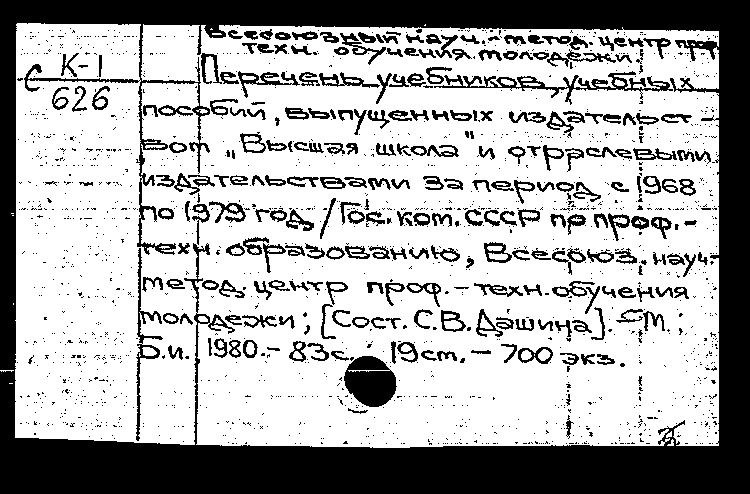 Всесоюзный науч.-метод. центр проф.
техн. обучения молодежи.
С К-1
626
Перечень учебников, учебных
пособий, выпущенных издательст-
вом „Высшая школа" и отраслевыми
издательствами за период с 1968
по 1979 год / Гос. ком. СССР по проф.-
техн. образованию, Всесоюз. науч.-
метод. центр проф.-техн. обучения
молодежи; [Сост. С.В. Дашина]. - М.:
Б.и., 1980. - 83с. 19см. - 700 экз.